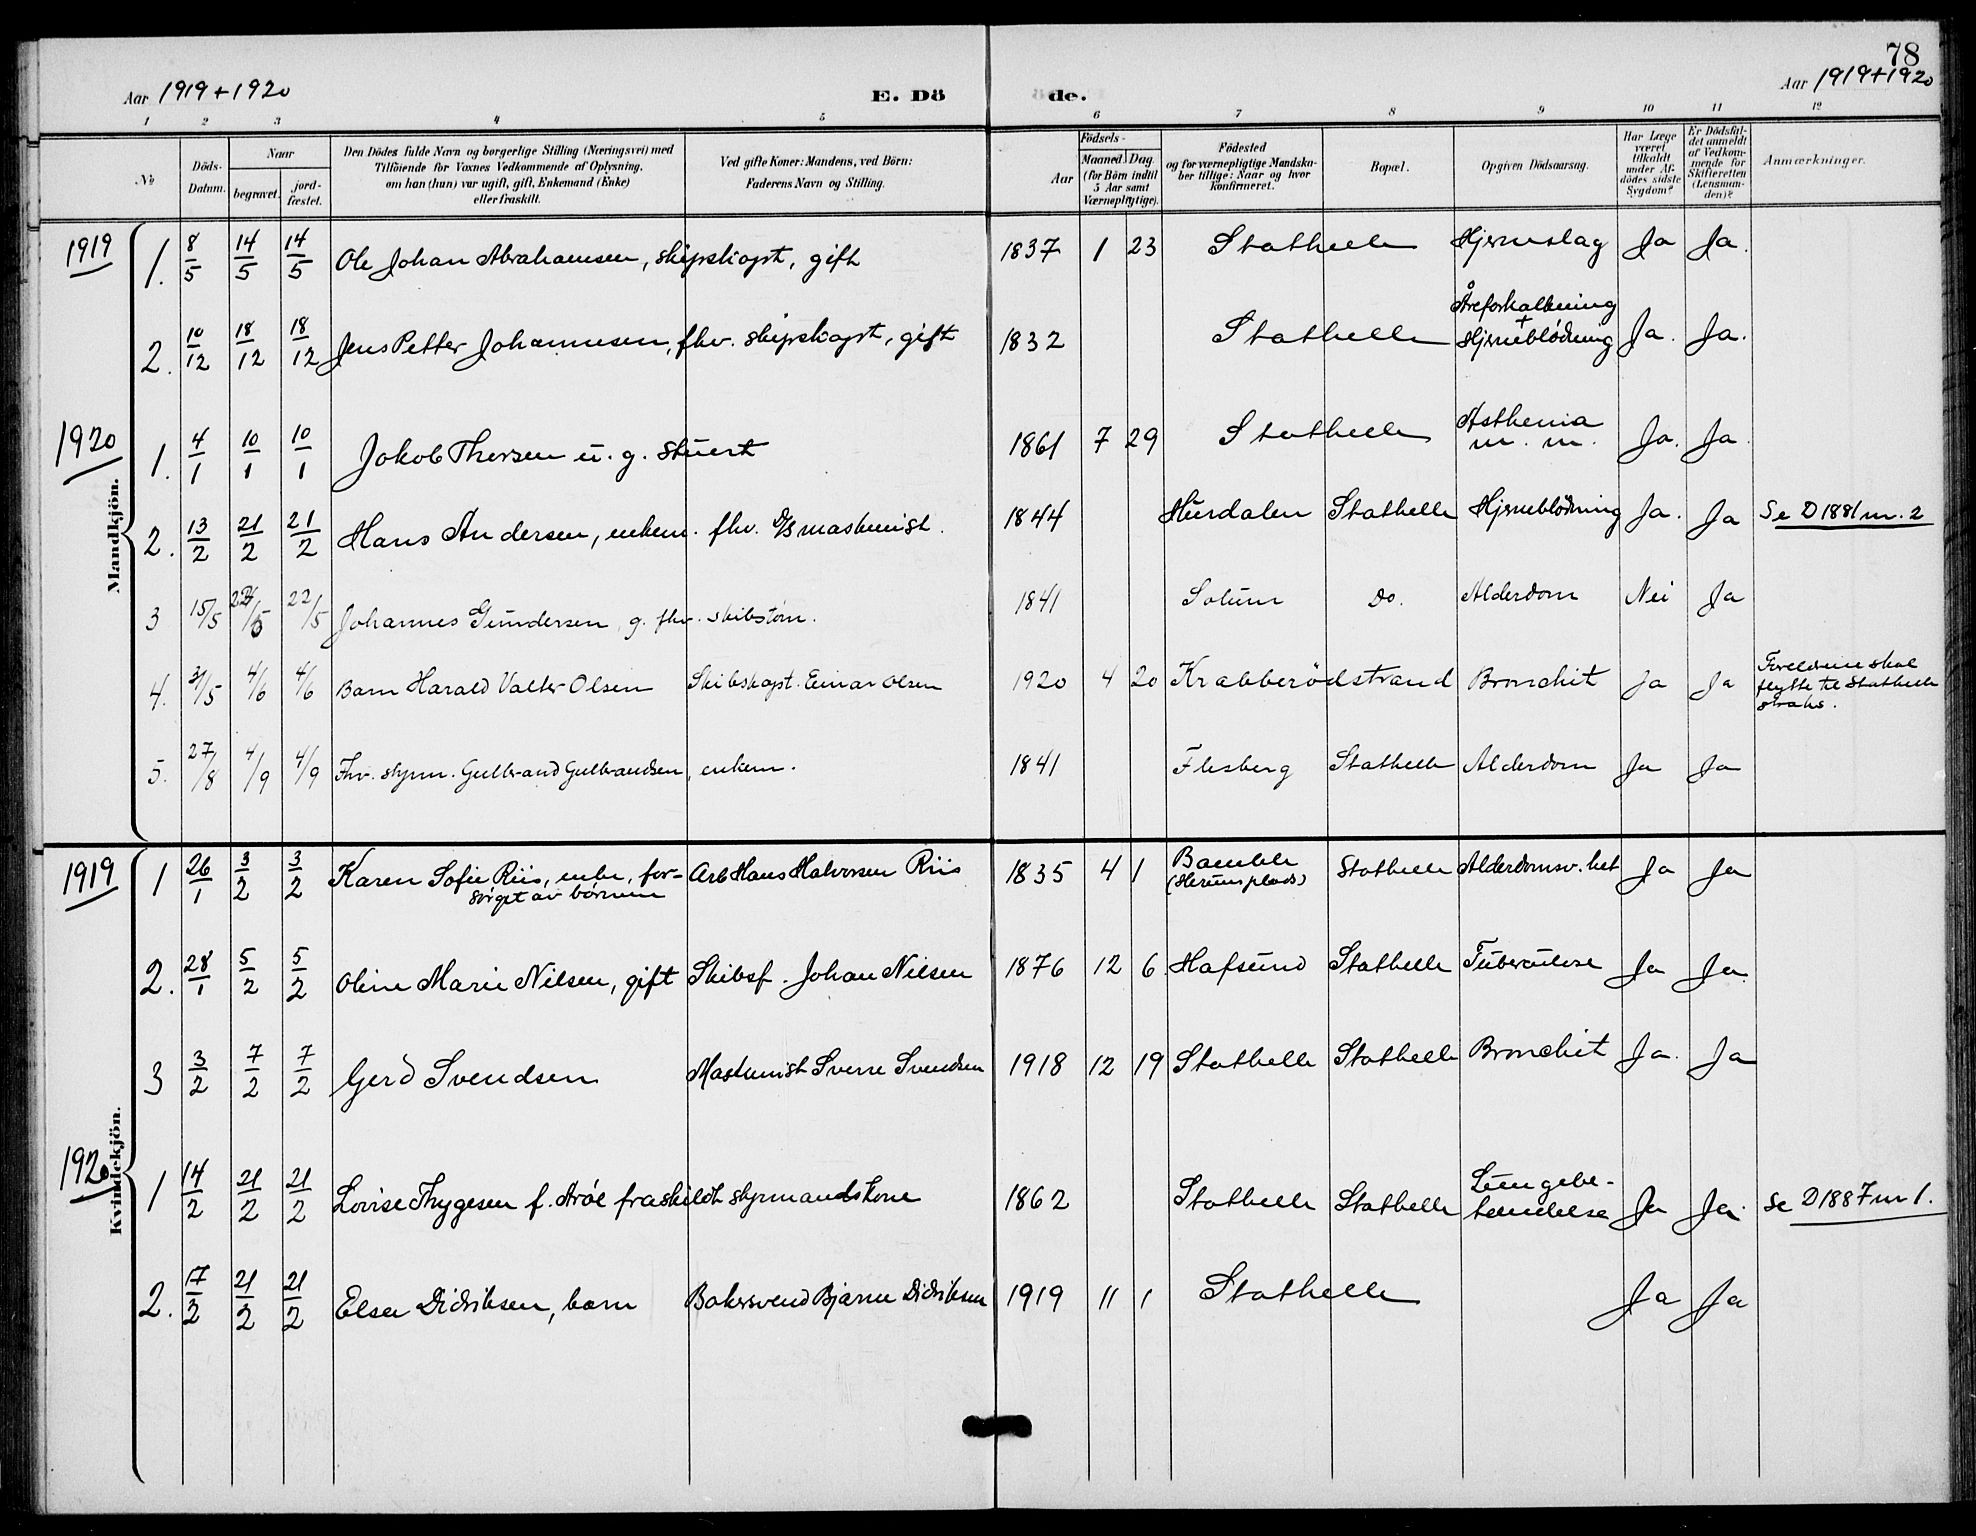 78
Aar 1919+1920 E. Dö de. Aar 1919+1920
1 2 3 4 5 6 7 8 9 10 11 12
No
Döds-Datum.
Naar
begravet.
jord-fæstet.
Den Dödes fulde Navn og borgerlige Stilling (Næringsvei) med
Tilföiende for Voxnes Vedkommende af Oplysning,
om han (hun) var ugift, gift, Enkemand (Enke)
eller fraskilt.
Ved gifte Koner: Mandens, ved Börn:
Faderens Navn og Stilling.
Födsels-
Aar
Maaned. Dag.
(for Börn indtil
5 Aar samt
Værnepligtige).
Födested
og for værnepligtige Mandska-
ber tillige: Naar og hvor
konfirmeret.
Bopæl.
Opgiven Dödsaarsag.
Har Læge
været
tilkaldt
under Af-
dödes sidste
Sygdom?
Er Dödsfal-
det anmeldt
af Vedkom-
mende for
Skifteretten
(Lensman-
den)?
Anmærkninger.
Mandkjön.
1919
1. 8/5 14/5 14/5 Ole Johan Abrahamsen, skipskapt, gift 1837 1 23 Stathelle Hjerneslag Ja Ja.
2. 10/12 18/12 18/12 Jens Petter Johannesen, fhv. skipskapt, gift 1832 Stathelle Åreforkalkning + Hjerneblødning Ja. Ja.
1920
1. 4/1 10/1 10/1 Jokob Thorsen u. g. stuert 1861 7 29 Stathelle Asthenia m. m. Ja. Ja.
2. 13/2 21/2 21/2 Hans Andersen, enkem. fhv. D/S maskinist. 1844 Hurdalen Stathelle Hjerneblødning Ja. Ja Se D 1881 m. 2
3 15/5 22/5 22/5 Johannes Gundersen, g. fhv. skibstøm. 1841 Solum Do. Alderdom Nei Ja
4. 31/5 4/6 4/6 Barn Harald Valter Olsen Skibskapt. Einar Olsen 1920 4 20 Krabberødstrand Bronchit Ja Ja Foreldrene skal
flytte til Stathelle
straks.
5. 27/8 4/9 4/9 Fhv. styrm. Gulbrand Gulbrandsen, enkem. 1841 Flesberg Stathelle Alderdom Ja Ja
Kvindekjön.
1919
1 26/1 3/2 3/2 Karen Sofie Riis, enke, for- Arb Hans Halvorsen Riis 1835 4 1 Bamble Stathelle Alderdomsv.het Ja Ja
sørget av børnene (Herumplads)
2. 28/1 5/2 5/2 Oline Marie Nilsen, gift Skibsf. Johan Nilsen 1876 12 6. Hafsund Stathelle Tuberculose Ja Ja.
3 3/2 7/2 7/2 Gerd Svendsen Maskinist Sverre Svendsen 1918 12 19 Stathelle Stathelle Bronchit Ja. Ja
1920
1 14/2 21/2 21/2 Lovise Thygesen f. Arøe fraskildt styrmandskone 1862 Stathelle Stathelle Lungebe-
tendelse Ja Ja. Se D 1887 m 1.
2. 17/2 21/2 21/2 Elsa Didriksen, barn Bakersvend Bjarne Didriksen 1919 11 1 Stathelle Ja Ja